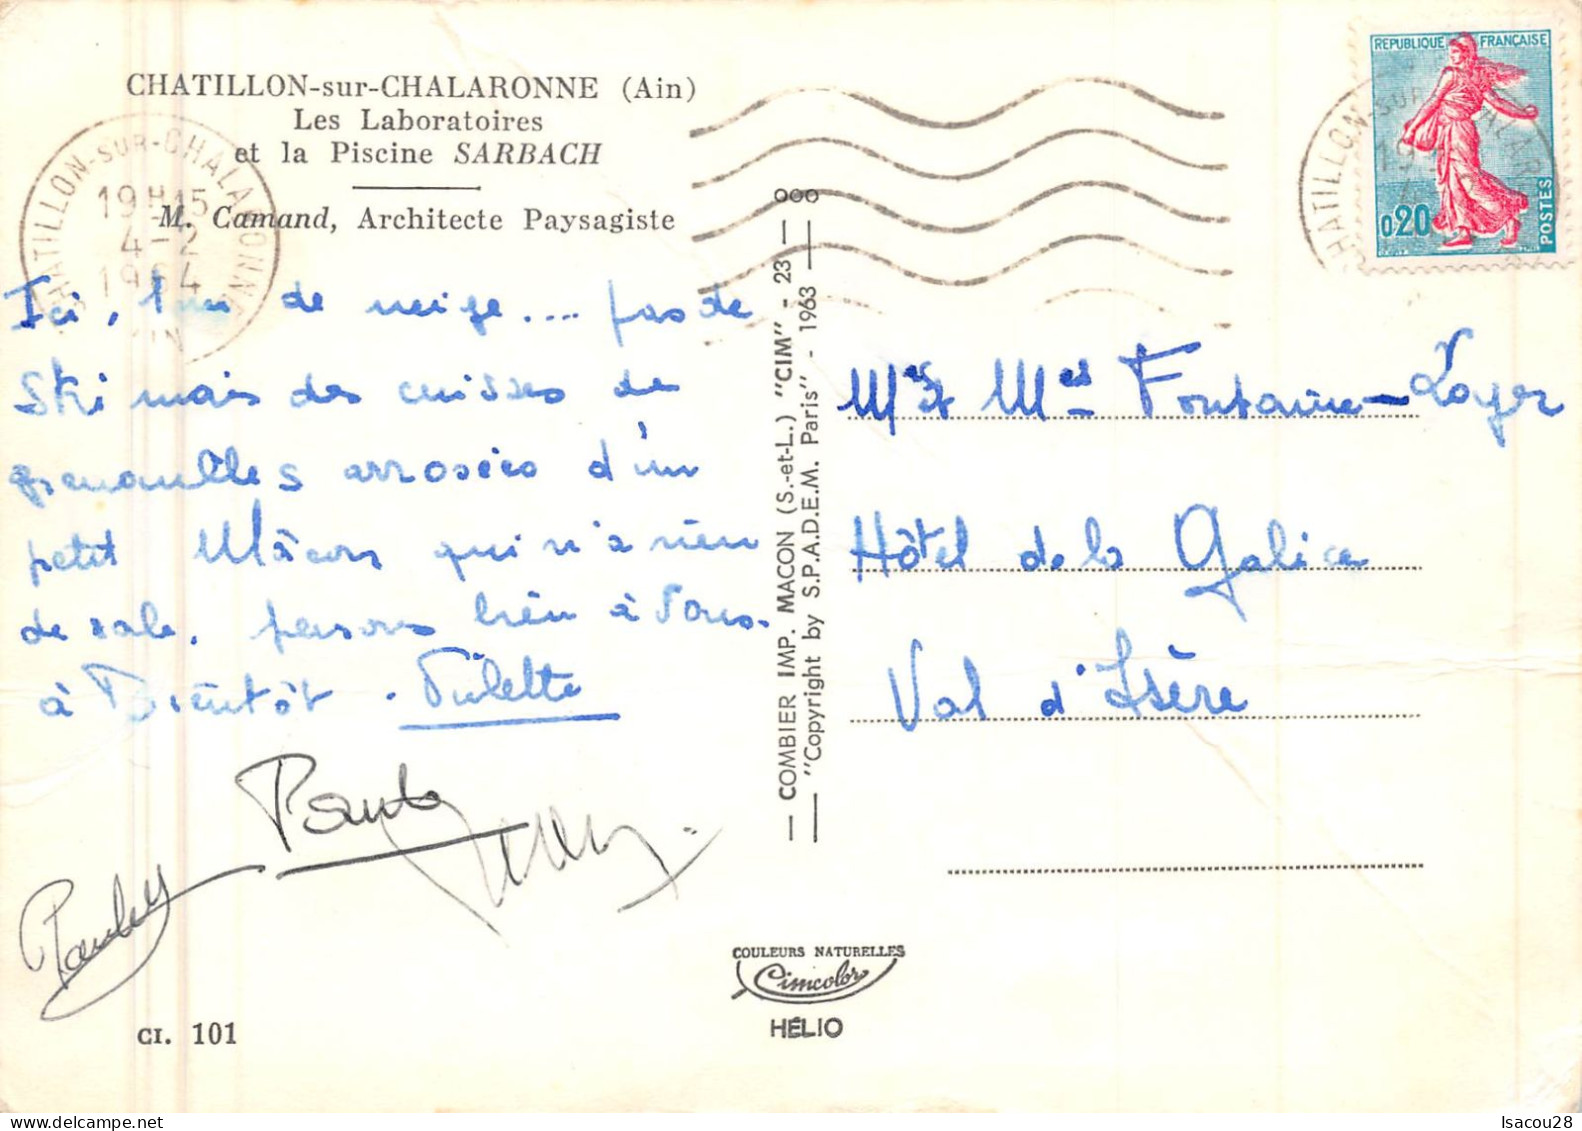 CHATILLON-sur-CHALARONNE (Ain)
Les Laboratoires
et la Piscine SARBACH
M. Camand, Architecte Paysagiste
CHATILLON-SUR-CHALARONNE
19H15
4-2
1964
AIN
REPUBLIQUE FRANÇAISE
0,20
POSTES
CHATILLON-SUR-CHALARONNE
Ici, 1m de neige.... pas de
Ski mais des cuisses de
grenouilles arrosées d'un
petit Mâcon qui n'a rien
de sale. pensons bien à Vous.
à Bientôt.
M. et Md Fontaine-Loyer
Hôtel de la Galice
Val d'Isère
COMBIER IMP. MACON (S.-et-L.) "CIM" - 23
"Copyright by S.P.A.D.E.M. Paris" - 1963
COULEURS NATURELLES
Cimcolor
HÉLIO
CI. 101
Isacou28